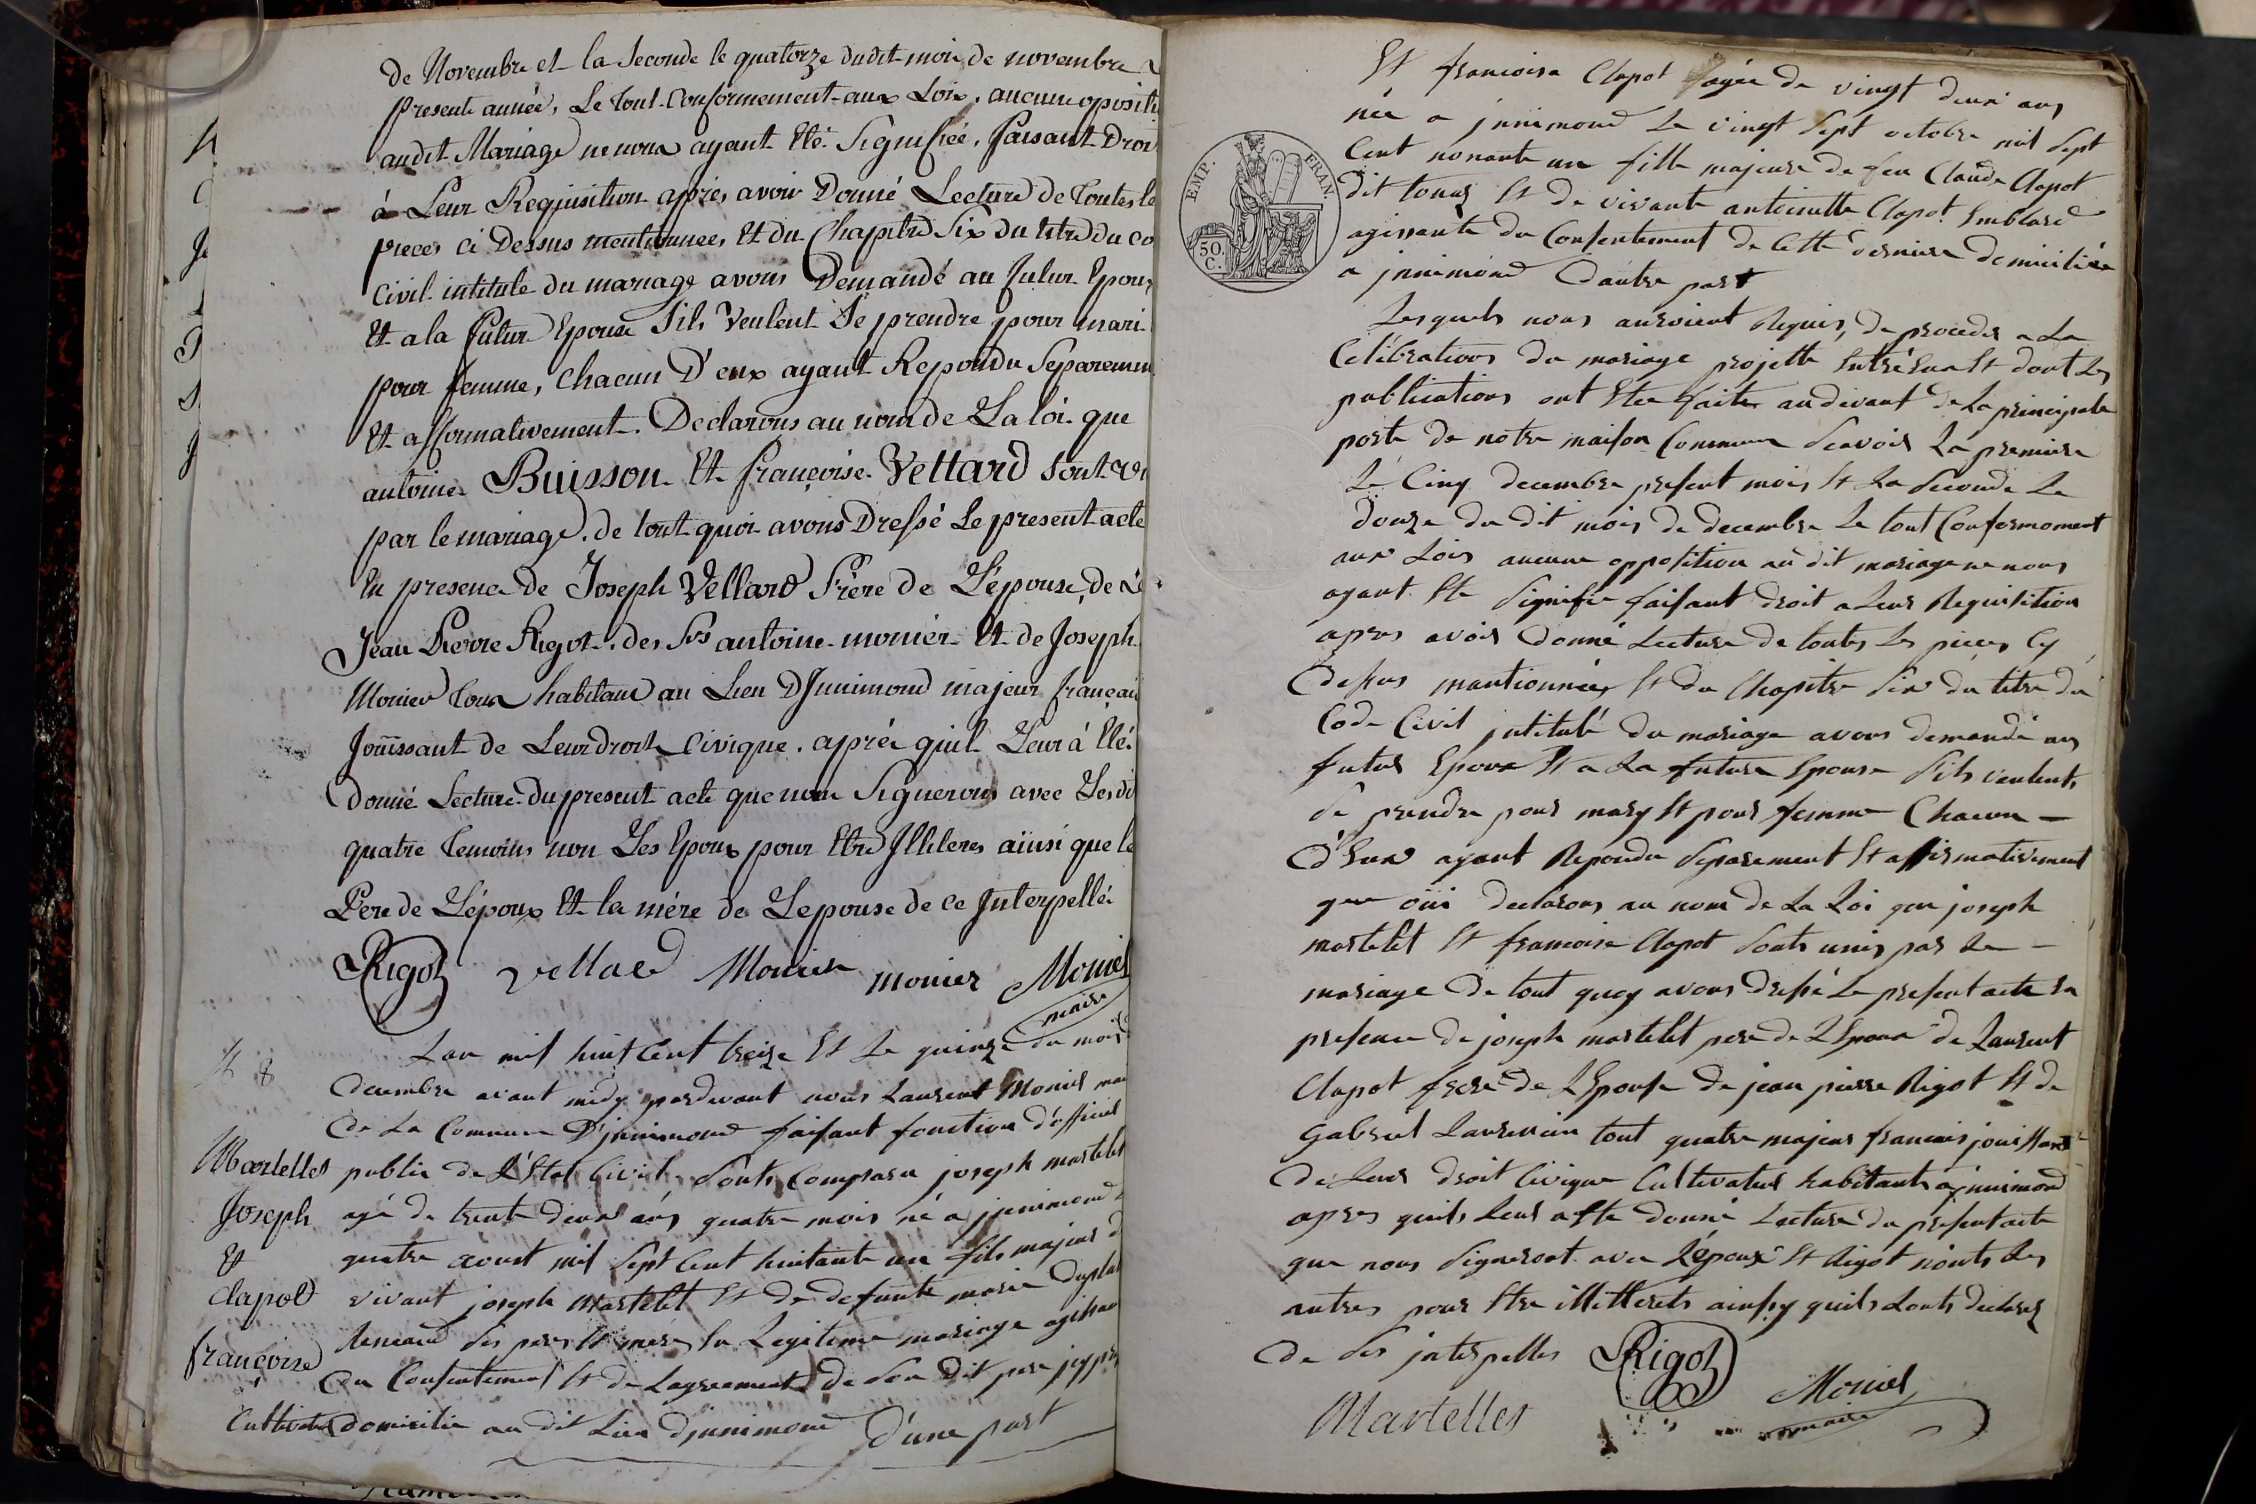 de Novembre et la Seconde le quatorze dudit mois de novembre
presente année, Le tout Conformement aux Loix, aucune oposit
audit Mariage ne nous ayant Eté Signifiée, faisant Droi
à Leur Requisition apprés avoir Donné Lecture de toutes le
pieces ci Dessus mentionnees, Et du Chapitre Six du titre du co
civil intitule du mariage avons Demandé au futur Epoux
Et a la future Epouse Sils Veulent Se prendre pour mari
pour femme, chacun D'eux ayant Repondu Separemen
Et affirmativement. Declarons au nom de La loi que
antoine Buisson Et françoise Vettard sont
par le mariage. de tout quoi avons Dressé Le present acte
En presence de Joseph Vettard frère de L'épouse, de
Jean Pierre Rigot. des Srs antoine monier Et de Joseph
Monier tous habitans au Lieu D'Innimond majeur françai
Jouissant de Leur droit civique. aprés quil Leur à Eté
donné Lecture du present acte que nous Signerons avec Lesd
quatre temoins non Les Epoux pour Etre Jlliteres ainsi que le
Pere de L'époux Et la mére de Lepouse de ce Interpellé
Rigot vettard Monier monier Monier
maire
N 8
Lan mil huit Cent treize Et Le quinze du mois
decembre avant midy pardevant nous Laurent Monier
De La Commune D'jnnimond faisant fonction d'officier
Martellet
Joseph
Et
Clapot
françoise
public de L'Etat Civil Sonts Comparu joseph martelet
agé de trente deux ans quatre mois né a jnnimond
quatre aoust mil Sept Cent huitante un fils majeur d
vivant joseph Martelet Et de defunte marie
Ses pere Et mere En Legitime mariage
Du Consentement Et de Lagreement de Son dit pere
Cultivateur domicilie au dit Lieu djnnimond d'une part
EMP. FRAN.
50.
C.
Et francoise Clapot agée de vingt deux ans
née a jnnimond Le vingt Sept octobre mil Sept
Cent nonante un fille majeure de feu Claude Clapot
dit Et de vivante antoinette Clapot
agissante du Consentement de Cette derniere domiciliée
a jnnimond dautre part
Lesquels nous auroient Requis de proceder a La
Celebrations du mariage projette Entre Eux Et dont Les
publications ont Etee faites au divant de La principale
porte de notre maison Commune Scavoir La premiere
Le Cinq decembre present mois Et La Seconde Le
douze du dit mois de decembre Le tout Conformement
aux Lois aucune opposition au dit mariage ne nous
ayant Ete Signifie faisant droit a Leur Requisition
apres avoir donné Lecture de toutes Les pieces Cy
dessus mantionnées Et du Chapitre Six du titre du
Code Civil jntitulé du mariage avons demandé au
futur Epoux Et a La future Epouse Sils veulents
Se prendre pour mary Et pour femme Chacun
d'Eux ayant Repondu Separement Et affirmativement
que oüi declarons au nom de La Loi que joseph
martelet Et francoise Clapot Sonts unis par Le
mariage De tout quoy avons dressé Le present acte En
presence de joseph martelet pere de LEpoux de Laurent
Clapot frere de LEpouse de jean pierre Rigot Et de
Gabriel tout quatre majeur francais jouissant
De Leur droit Civique Cultivateur habitants a jnnimond
apres quils Leur a Ete donné Lecture du present acte
que nous Signeront avec L'époux Et Rigot nonts Les
autres pour Etre illitterets ainsy quils Lonts declarer
De Ses jnterpelles
Rigot
Martellet
Monier
maire